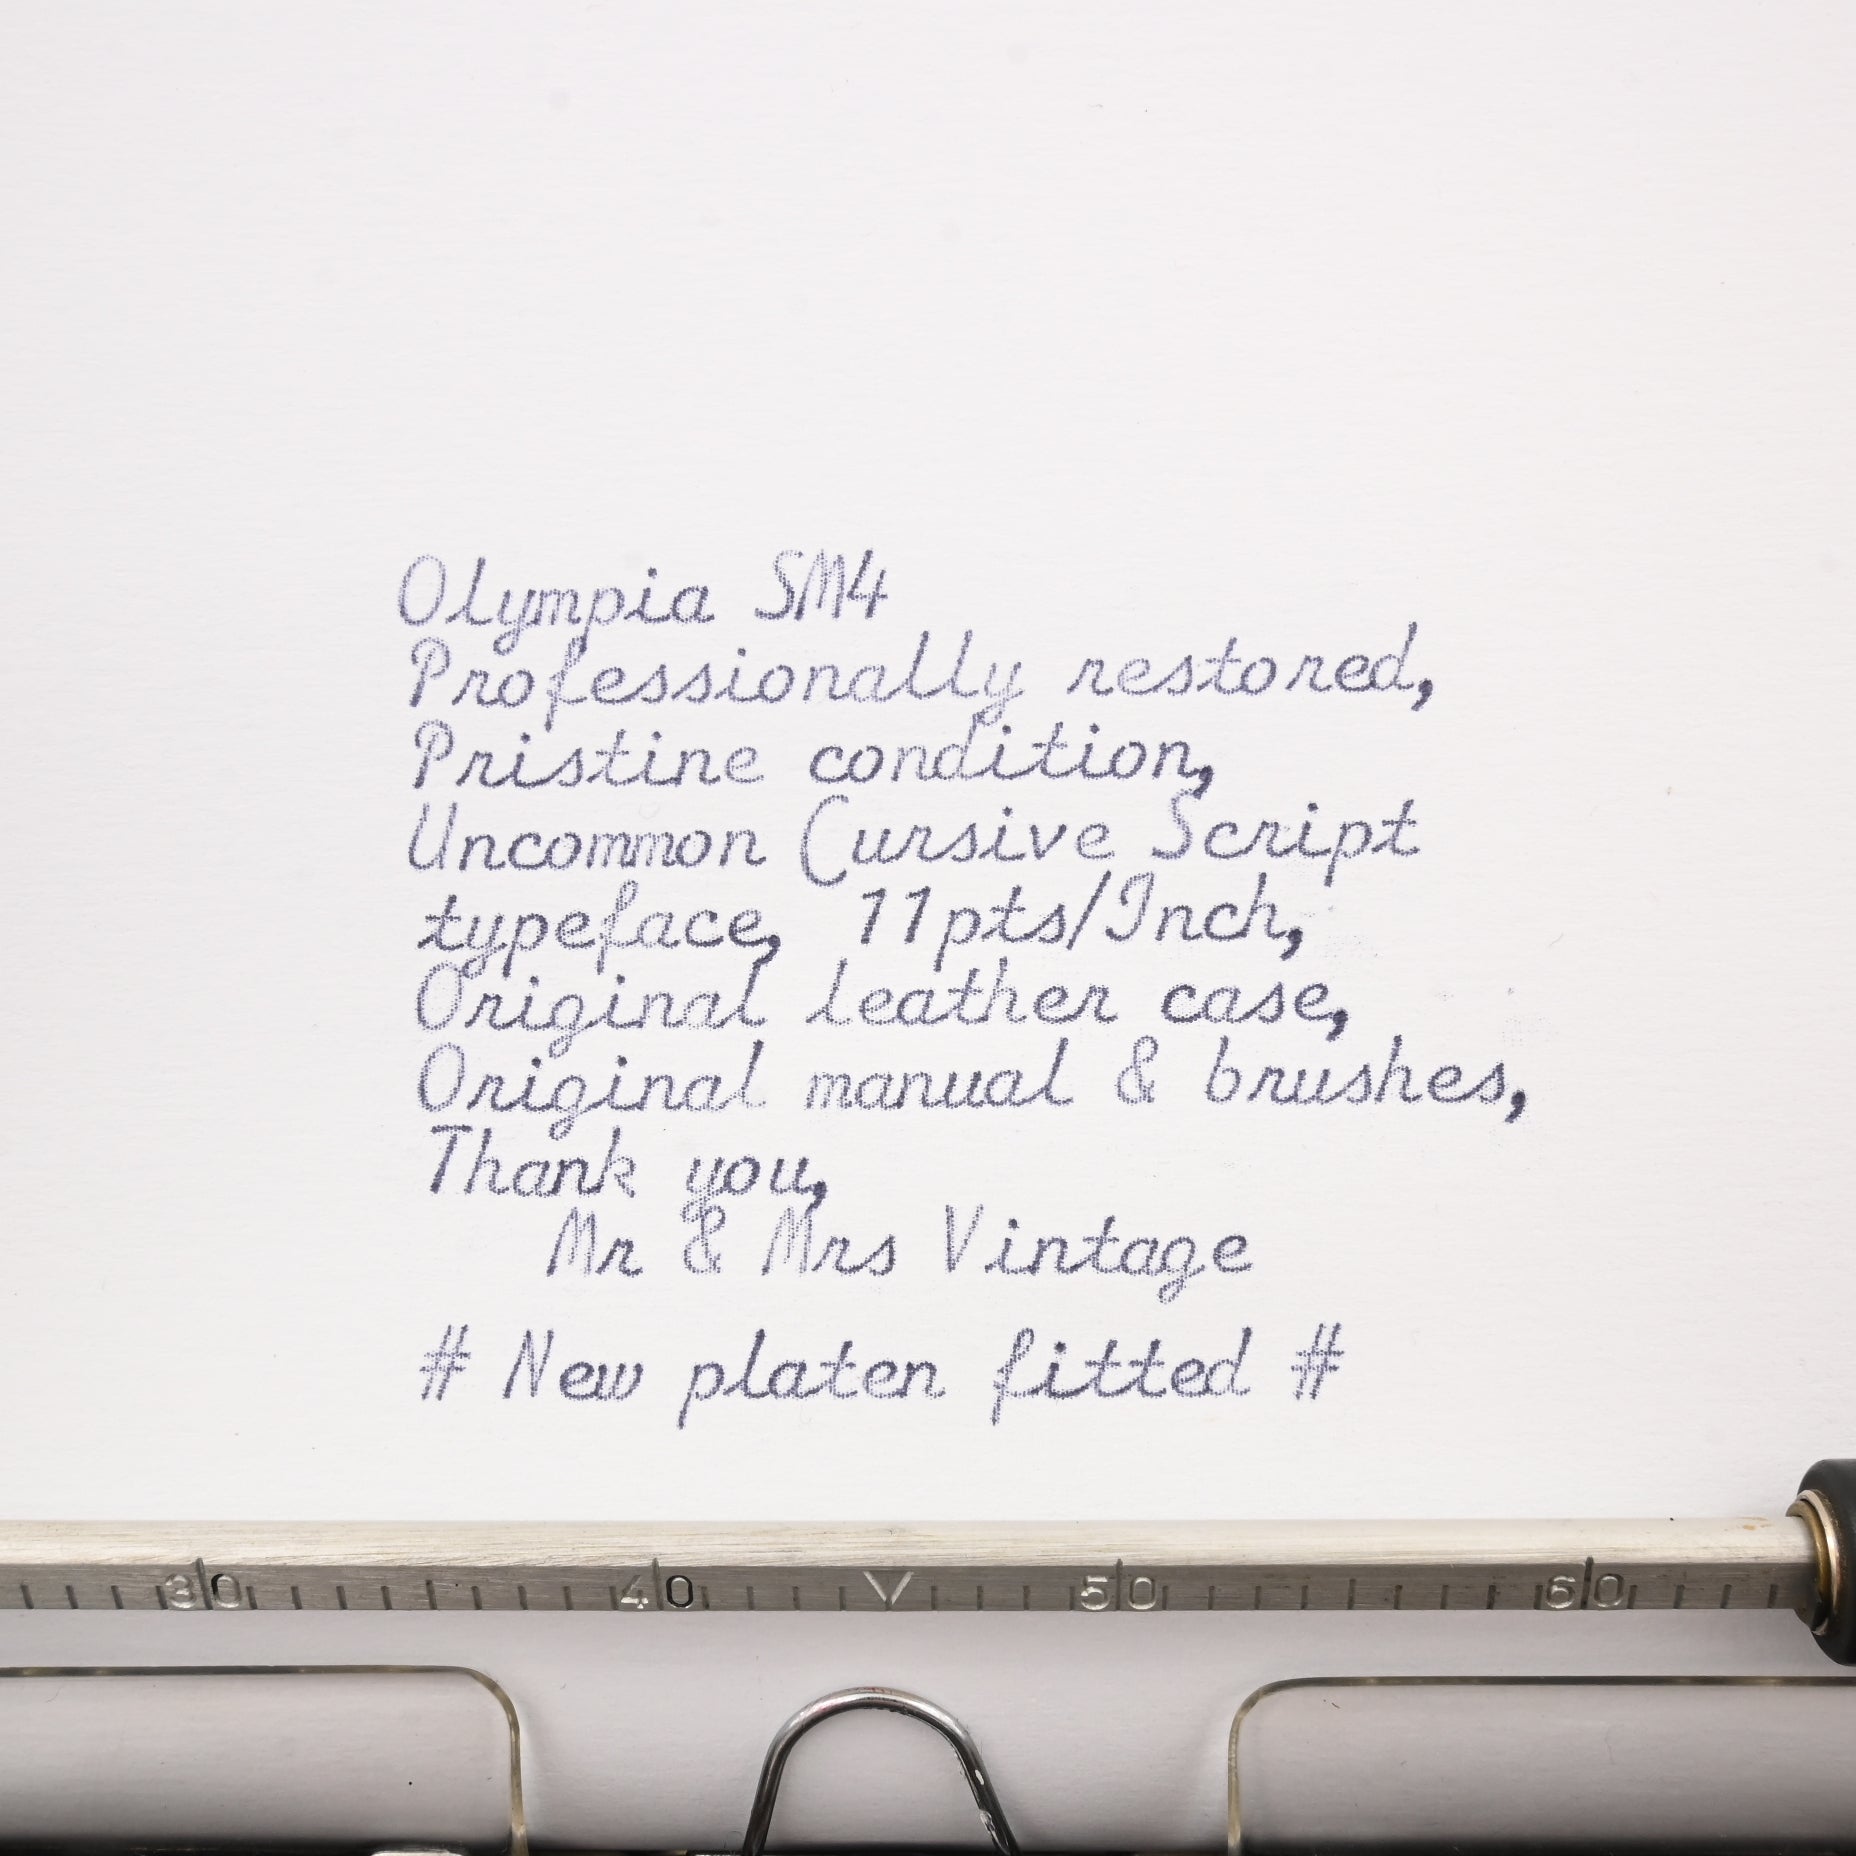 Olympia SM4
Professionally restored,
Pristine condition,
Uncommon Cursive Script
typeface, 11pts/Inch,
Original leather case,
Original manual & brushes,
Thank you,
Mr & Mrs Vintage
# New platen fitted #
30 40 50 60